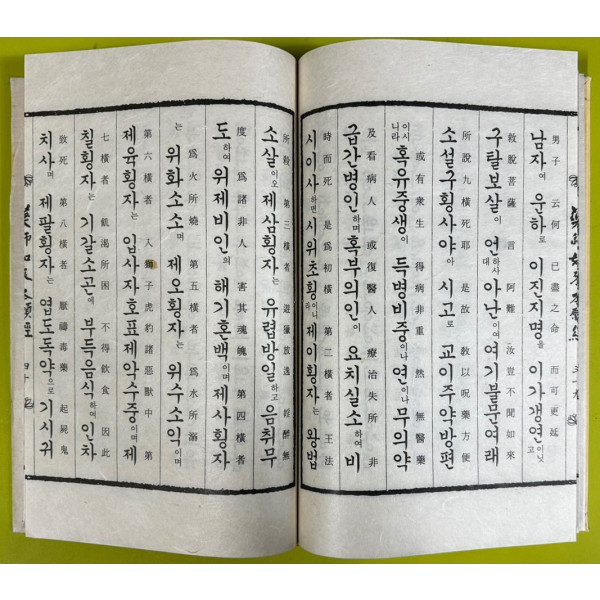 男子 云何 已盡之命 而可更延
남자여 운하로 이진지명을 이가갱연이닛고
救脫菩薩 言 阿難 汝豈不聞如來
구탈보살이 언하사대 아난이여 여기불문여래
所說九橫死耶 是故 敎以呪藥方便
소설구횡사야아 시고로 교이주약방편
或有衆生 得病非重 然 無醫藥
이시니라 혹유중생이 득병비중이나 연이나 무의약
及看病人 或復醫人 療治失所 非
급간병인하며 혹부의인이 요치실소하여 비
時而死 是爲初橫 第二橫者 王法
시이사하면 시위초횡 제이횡자는 왕법
所殺 第三橫者 遊獵放逸 婬醉無
소살이오 제삼횡자는 유렵방일하고 음취무
度 爲諸非人 害其魂魄 第四橫者
도하여 위제비인의 해기호백이며 제사횡자
爲火所燒 第五橫者 爲水所溺
는 위화소소며 제오횡자는 위수소익이며
第六橫者 入獅子虎豹諸惡獸中 第
제육횡자는 입사자호표제악수중이며 제
七橫者 飢渴所困 不得飮食 因此
칠횡자는 기갈소곤에 부득음식하여 인차
致死 第八橫者 厭禱毒藥 起屍鬼
치사며 제팔횡자는 엽도독약으로 기시귀
藥師如來本願經 四十